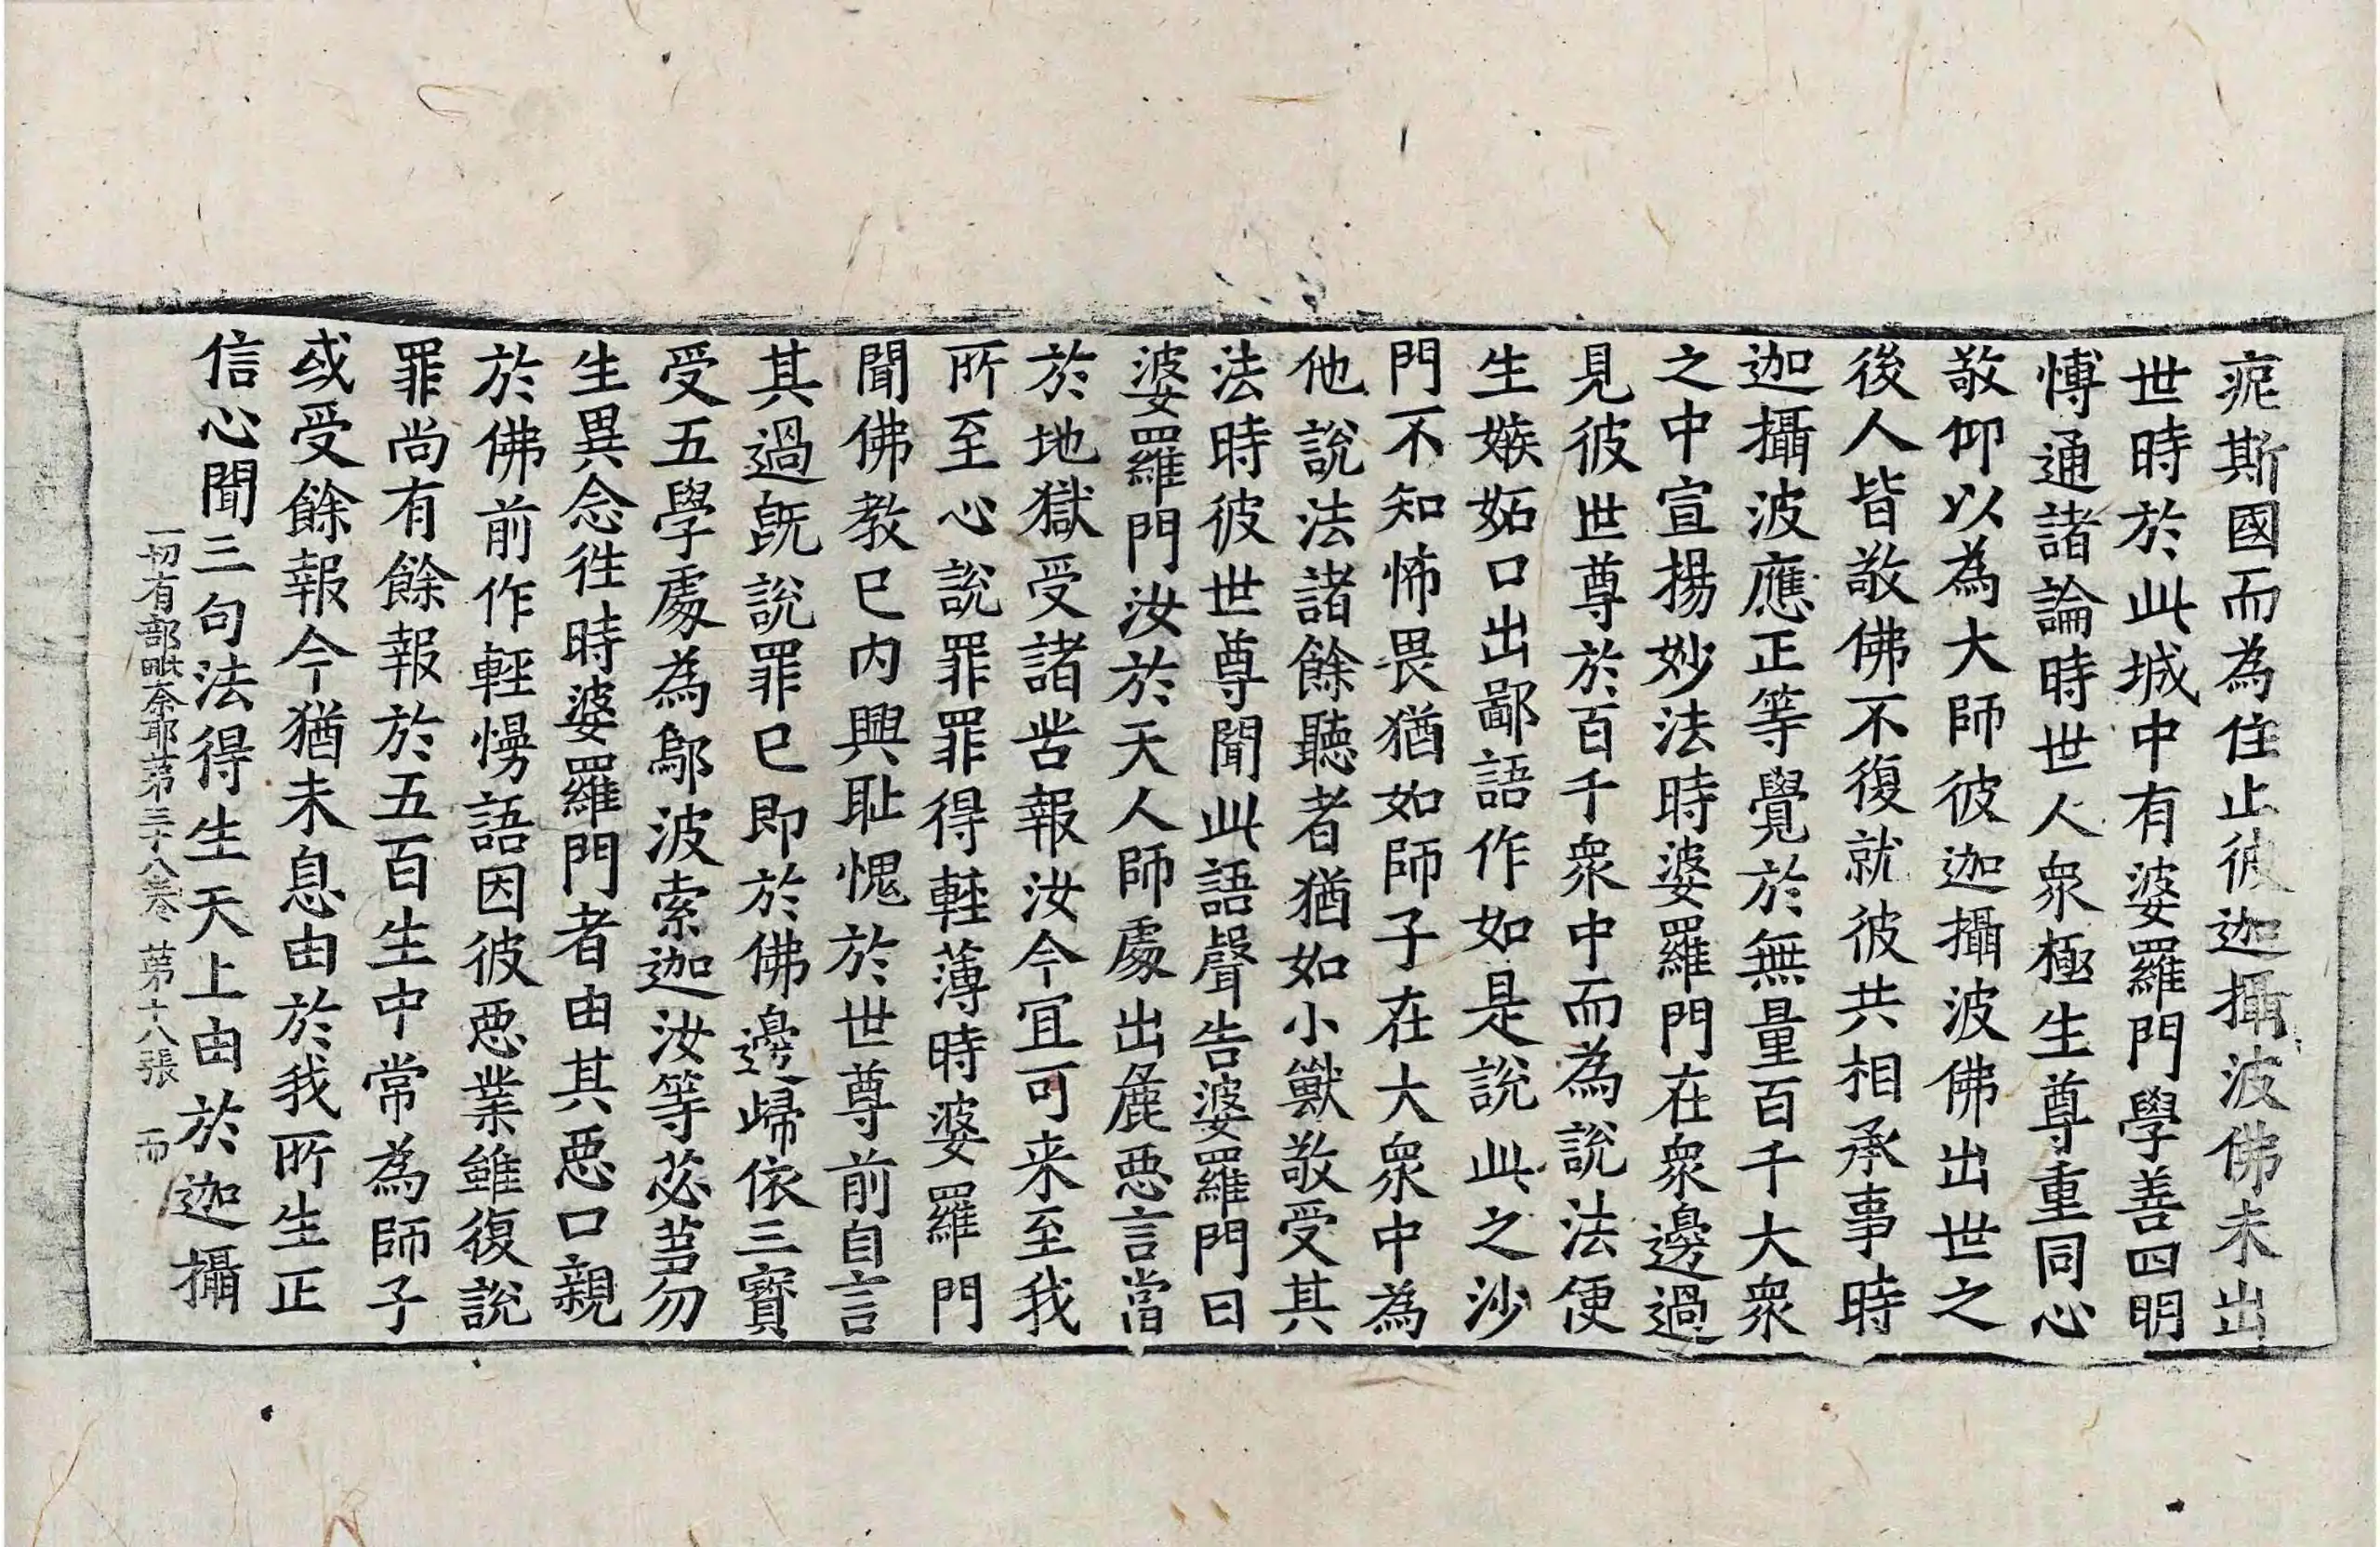 痆斯國而為住止彼迦攝波佛未出
世時於此城中有婆羅門學善四明
愽通諸論時世人衆極生尊重同心
敬仰以為大師彼迦攝波佛出世之
後人皆敬佛不復就彼共相承事時
迦攝波應正等覺於無量百千大衆
之中宣揚妙法時婆羅門在衆邊過
見彼世尊於百千衆中而為說法便
生嫉妬口出鄙語作如是說此之沙
門不知怖畏猶如師子在大衆中為
他說法諸餘聽者猶如小獸敬受其
法時彼世尊聞此語聲告婆羅門曰
婆羅門汝於天人師處出麁惡言當
於地獄受諸苦報汝今冝可来至我
所至心說罪罪得輕薄時婆羅門
聞佛教已內興耻愧於世尊前自言
其過旣說罪已即於佛邊歸依三寶
受五學處為鄔波索迦汝等苾芻勿
生異念徃時婆羅門者由其惡口親
於佛前作輕慢語因彼惡業雖復說
罪尚有餘報於五百生中常為師子
或受餘報今猶未息由於我所生正
信心聞三句法得生天上由於迦攝
一切有部毗奈耶苐三十八卷 苐十八張 而